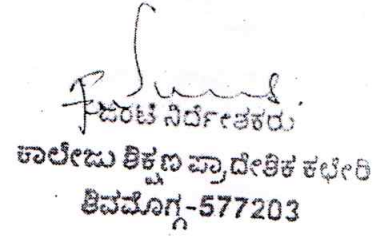 ಜಂಟಿ ನಿರ್ದೇಶಕರು
ಕಾಲೇಜು ಶಿಕ್ಷಣ ಪ್ರಾದೇಶಿಕ ಕಛೇರಿ
ಶಿವಮೊಗ್ಗ-577203